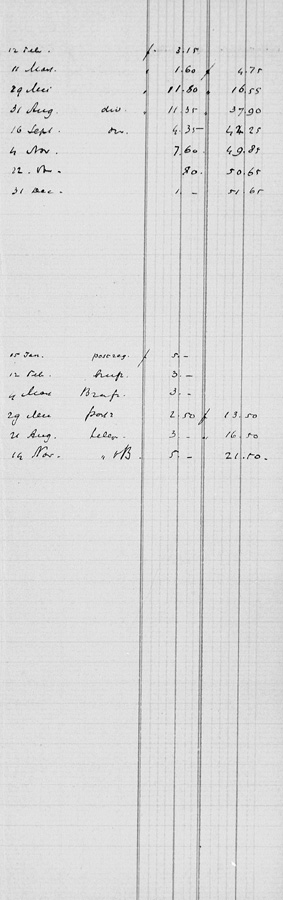 12 Feb. f 3.15
11 Maart 1.60 f 4.75
29 Mei 11.80 16.55
31 Aug. div. 11.35 37.90
16 Sept. div. 4.35 42.25
4 Nov. 7.60 49.85
22 Nov. .80 50.65
31 Dec. 1.- 51.65
15 Jan. postzeg. f 5.-
12 Feb. 3.-
4 Maart 3.-
29 Mei post 2.50 f 13.50
21 Aug. 3.- 16.50
14 Nov. 5.- 21.50